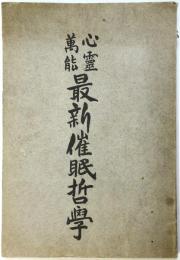 心靈
萬能
最新催眠哲學